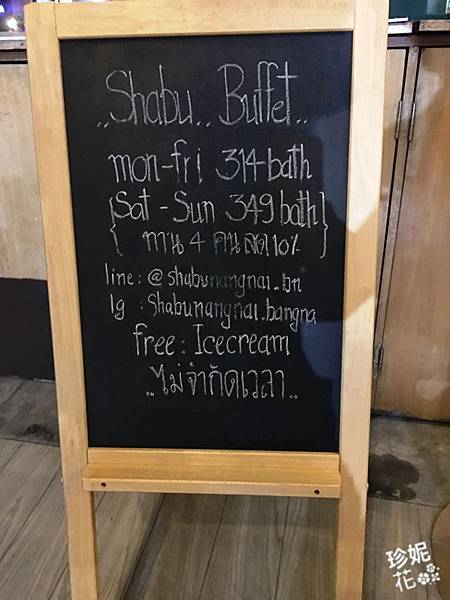 ..Shabu.. Buffet..
mon-fri 314 bath
{Sat - Sun 349 bath}
{ ทาน 4 คน ลด 10% }
line : @shabunangnai_bn
Ig : Shabunangnai.bangna
free : Icecream
..ไม่จำกัดเวลา..
珍妮
花